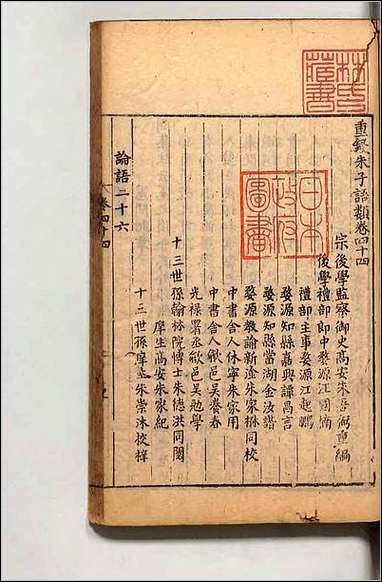 重鋟朱子語類卷四十四
宗後學監察御史高安朱吾弼重編
後學禮部郎中婺源汪國楠
禮部主事婺源江起鵬
婺源知縣嘉興譚昌言
婺源知縣當湖金汝諧
婺源教諭新淦朱家楙同校
中書舍人休寧朱家用
中書舍人歙邑吳養春
光祿署丞歙邑吳勉學
十三世孫翰林院博士朱德洪同閱
庠生高安朱家紀
十三世孫庠生朱崇沐校梓
論語二十六
卷四十四
林氏藏書
日本政府圖書